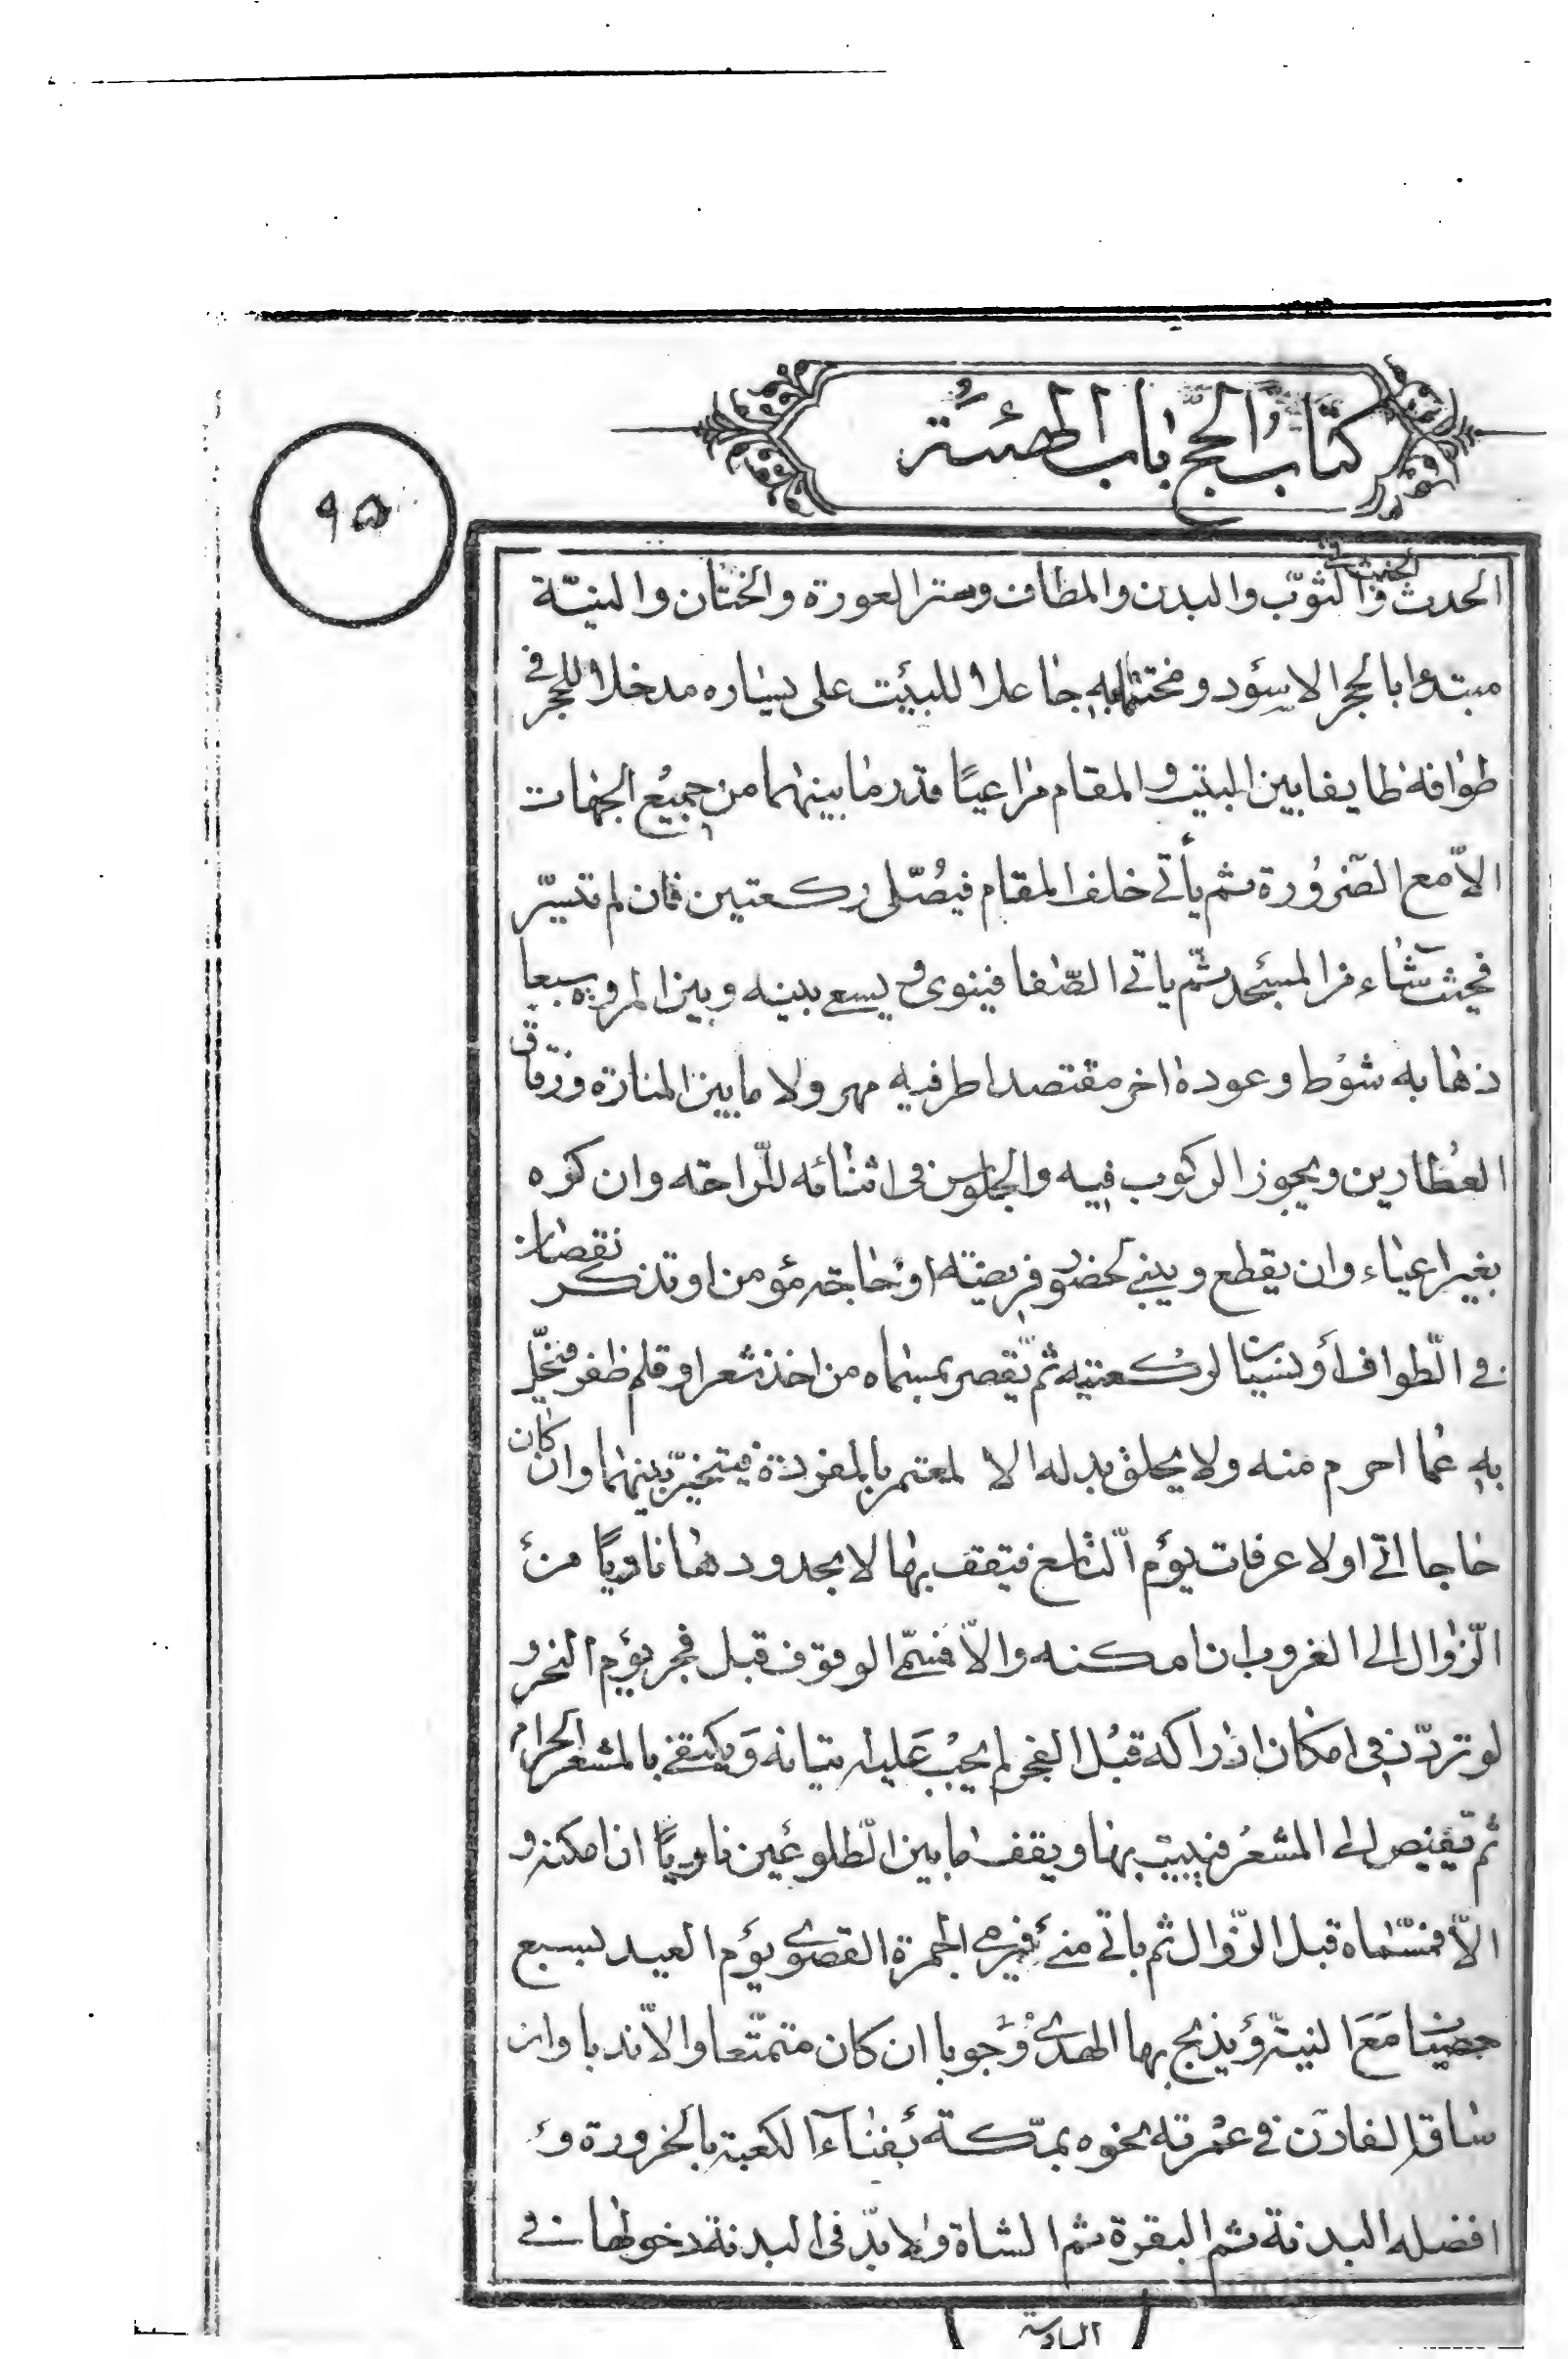 كتاب الحج باب الهيئة
٩٥
الخبث في
الحدث والثوب والبدن والمطاف وستر العورة والختان والنيّة
مبتدءا بالحجر الاسود ومختتما به جاعلا للبيت على يساره مدخلا للحجر في
طوافه طايفا بين البيت والمقام مراعيًا قدر ما بينهما من جميع الجهات
الّا مع الضرورة ثم يأتي خلف المقام فيصلّى ركعتين فان لم تيسّر
فحيث شاء من المسجد ثم ياتى الصّفا فينوى ويسعى بينه وبين المروة سبعا
ذهابه شوط وعوده اخر مقتصدا طرفيه مهرولا ما بين المنارة وزقاق
العطارين ويجوز الركوب فيه والجلوس فى اثنائه للرّاحة وان كره
بغير اعياء وان يقطع ويبنى لحضور فريضة او حاجة مؤمن او تذكر نقصان
في الطّواف أو نسيان الركعتيه ثم يقصر بمسماه من اخذ شعر او قلم ظفر فيحلّ
به عما احرم منه ولا يحلق بدله الا لمعتمر بالمفردة فيتخيّر بينهما وان كان
حاجا اتى اولا عرفات يوم التّاسع فيقف بها لا بحدودها ناويًا من
الزّوال الى الغروب ان امكنه والّا فمسمّى الوقوف قبل فجر يوم النحر و
لو تردّد في امكان ادراكه قبل الفجر لم يجب عليه اتيانه ويكتفى بالمشعر الحرام
ثم يفيض الى المشعر فيبيت بها ويقف ما بين الطّلوعين ناويًا ان امكنه و
الّا فمسمّاه قبل الزّوال ثم ياتى منى فيرمى الجمرة القصوى يوم العيد بسبع
حصيات مع النيّة ويذبح بها الهدى وجوبا ان كان متمتّعا والّا ندبا وان
ساق القارن في عمرته نحره بمكّة بفناء الكعبة بالحزورة و
افضله البدنة ثم البقرة ثم الشاة ولا بدّ فى البدنة دخولها في
السادسة